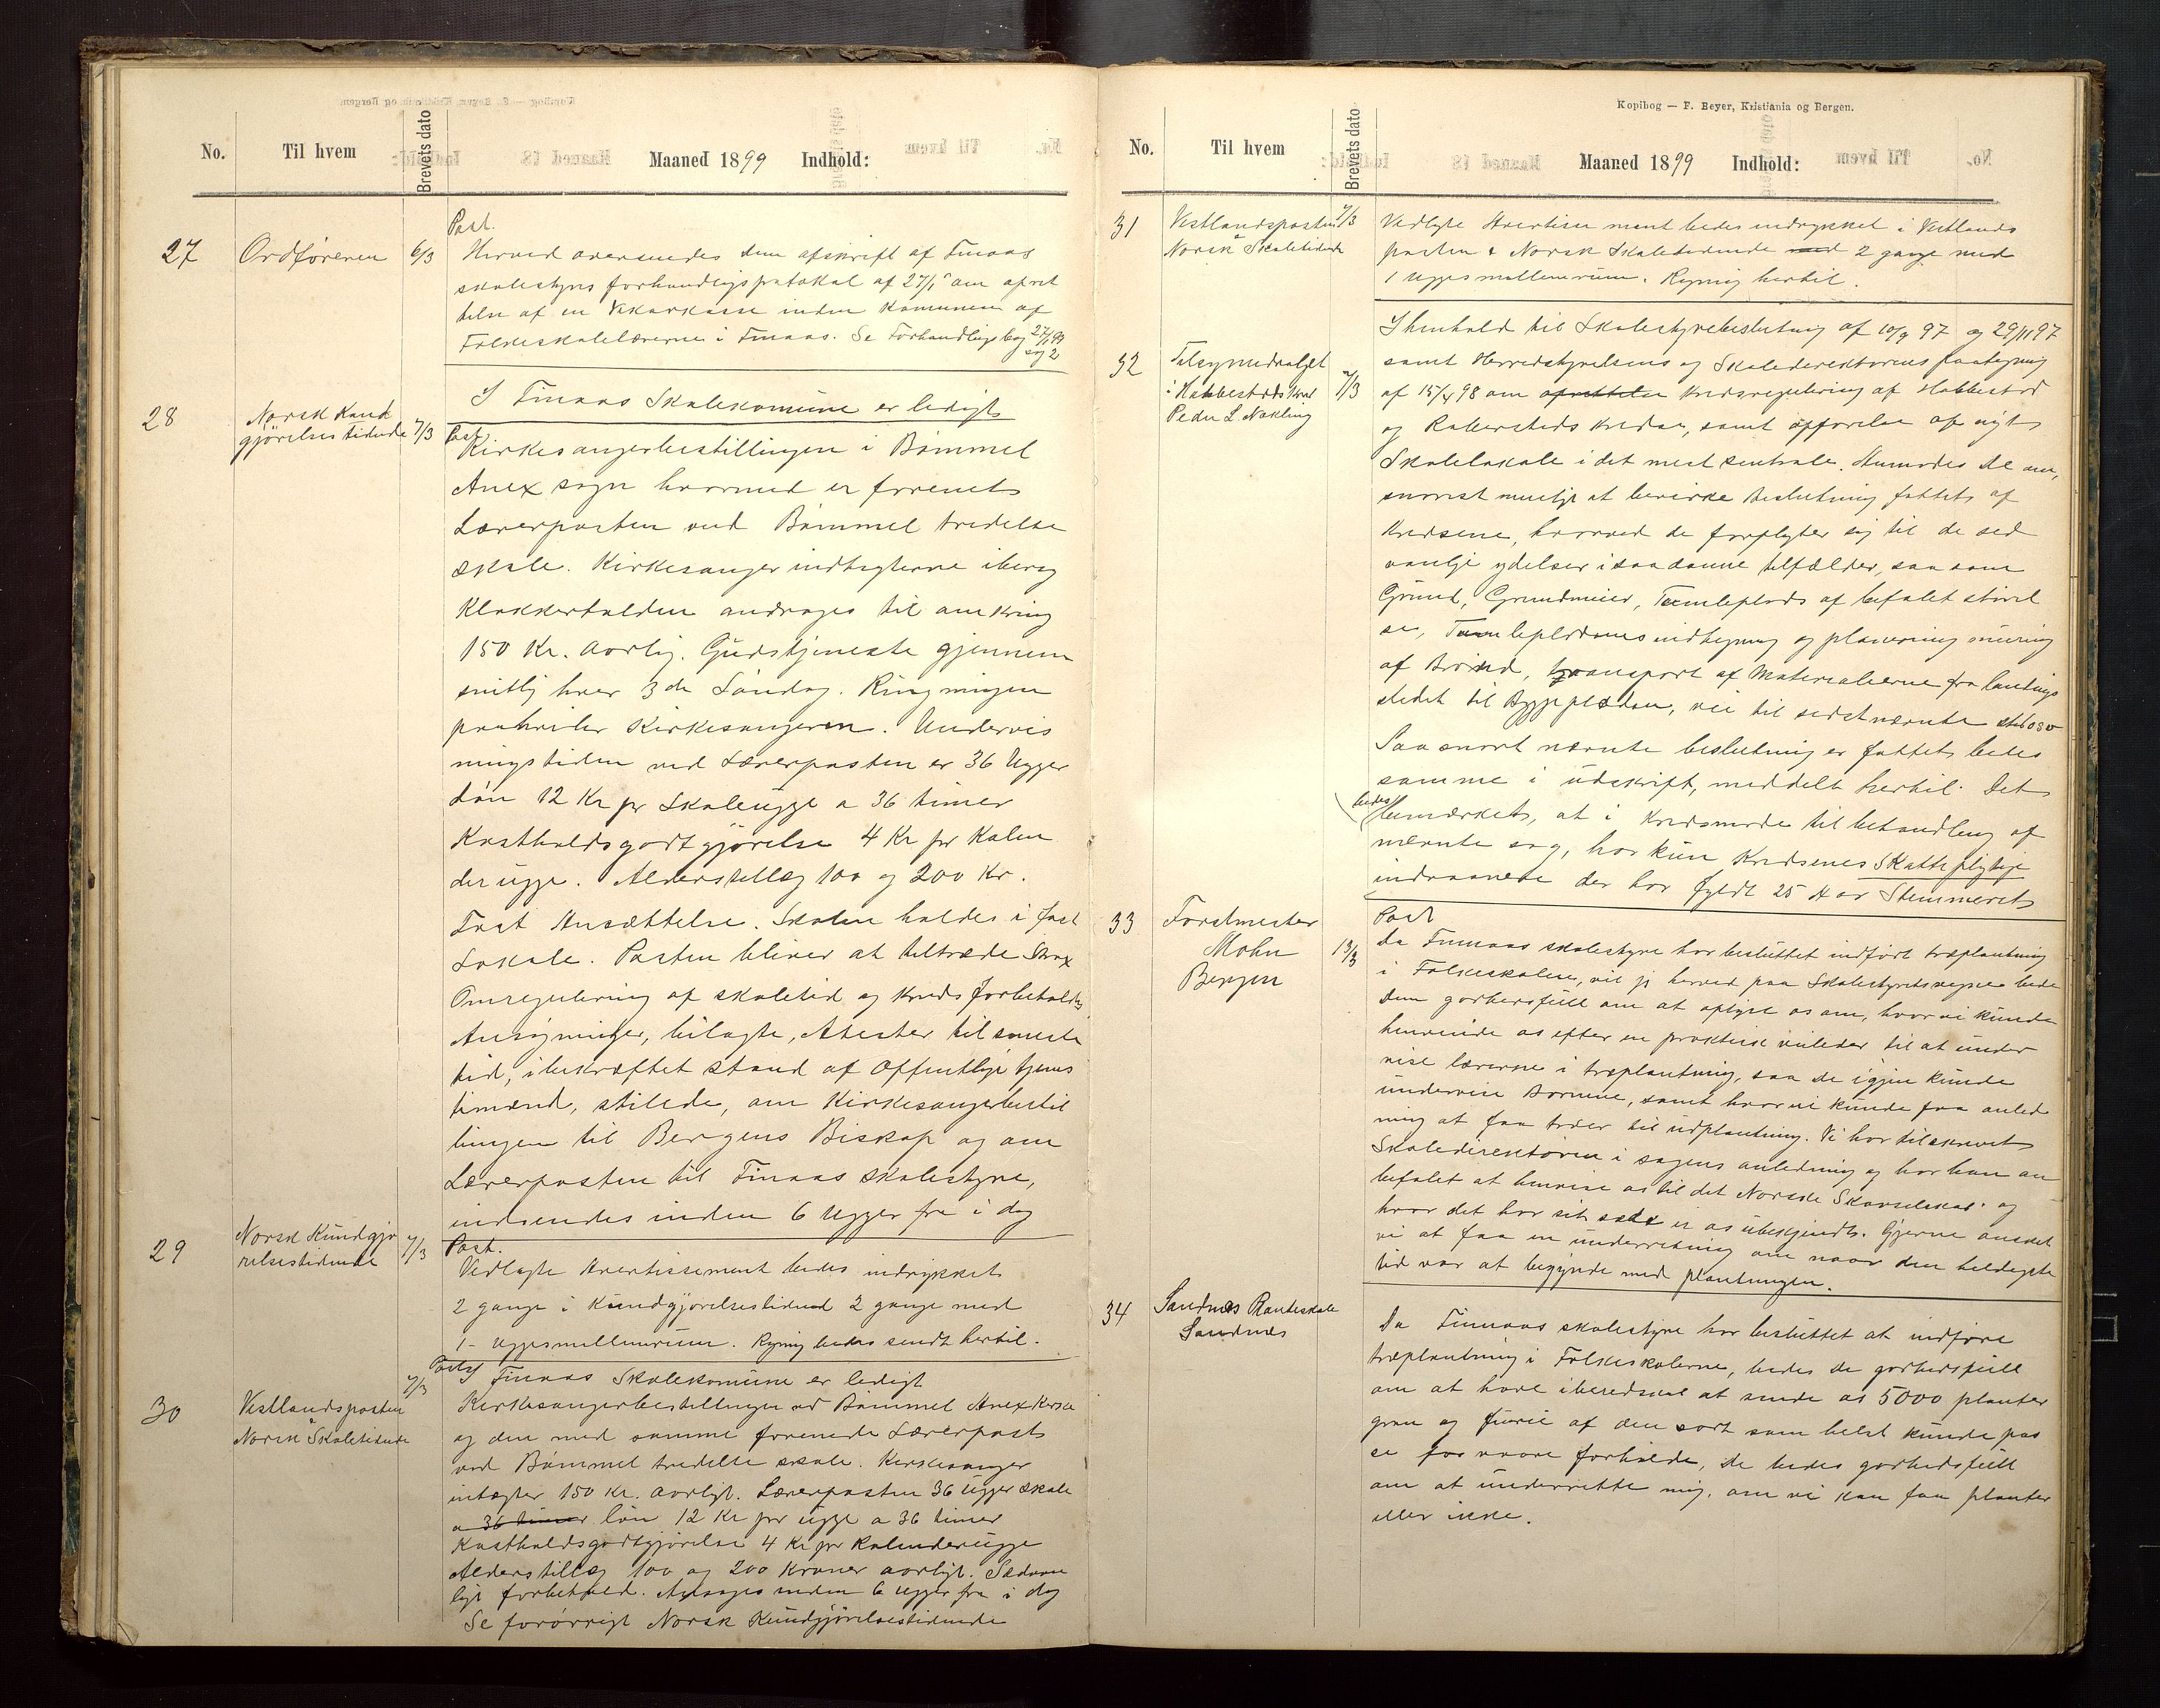 No. Til hvem Brevets dato Maaned 1899 Indhold:
27 Ordføreren 6/3
Post.
Herved oversendes dem afskrift af Finaas
skolestyrs forhandligsprotokol af 27/1 om opret
telse af en Vikarkasse inden Komunen af
Folkeskolelærerne i Finaas. Se Forhandligsbog 27/1 99
sag 2
28 Norsk Kund
gjörelses tidende 7/3
I Finaas Skolekomune er ledigt
Post
Kirkesangerbestillingen i Bömmel
Anex sogn hvormed er forenet
Lærerposten ved Bömmel tredelte
skole. Kirkesanger indtægterne ibereg
Klokkertolden andrages til omkring
150 Kr. aarlig. Gudstjeneste gjennem
snitlig hver 3de Söndag. Ringningen
paahviler Kirkesangeren. Undervis
ningstiden ved Lærerposten er 36 Uger
Lön 12 Kr pr Skoleuge a 36 timer
Kostholdsgodtgjörelse 4 Kr pr Kalen
deruge. Alderstillæg 100 og 200 Kr.
Fast Ansættelse. Skolen holdes i fast
Lokale. Posten bliver at tiltræde strax
Omregulering af skoletid og kreds forbeholdes
Ansögninger, bilagte, Atester til seneste
tid, i bekræftet stand af Offentlige tjenes
temænd, stilede, om Kirkesangerbestil
lingen til Bergens Biskop og om
Lærerposten til Finaas skolestyre,
indsendes inden 6 Uger fra i dag
29 Norsk Kundgjö
relsestidende 7/3
Post.
Vedlagte Avertissement bedes indrykket
2 gange i Kundgjörelsestidend 2 gange med
1- uges mellemrum. Regning bedes sendt hertil.
30 Vestlandsposten
Norsk Skoletidende 7/3
Post
I Finaas Skolekomune er ledigt
Kirkesangerbestillingen ved Bömmel Anex Kirke
og den med samme forenede Lærerpost
ved Bömmel tredelte skole. Kirkesanger
intægter 150 Kr. aarligt. Lærerposten 36 Uger skole
a 36 timer lön 12 Kr pr uge a 36 timer
Kostholdsgodtgjörelse 4 Kr pr Kalenderuge
Alderstillæg 100 og 200 Kroner aarligt. Sædvan
ligt forbehold. Ansöges inden 6 Uger fra i dag
Se forörrigt Norsk Kundgjörelsestidende
Kopibog — F. Beyer, Kristiania og Bergen.
No. Til hvem Brevets dato Maaned 1899 Indhold:
31 Vestlandsposten 7/3
Norsk Skoletidende
Vedlagte Avertisse ment bedes indrykket i Vestlands
posten & Norsk Skoletidende med 2 gange med
1 uges mellemrum. Regning hertil.
32 Tilsynsudvalget
i Habbestads Kreds 7/3
Peder L. Nækling
I henhold til Skolestyrebeslutning af 10/9 97 og 29/11 97
samt Herredsstyrelsens og Skoledirektörens paategning
af 15/4 98 om oprettelse Kredsregulering af Habbestad
og Rabersteds kredse, samt opförelse af nyt
Skolelokale i det mest sentrale. Anmodes De om,
snarest muligt at bevirke Beslutning fattet af
Kredsene, hvorved de forpligter sig til de sed
vanlige ydelser i saadanne tilfælder, saa som
Grund, Grundmur, Tumleplads af befalet störrel
se, Tumlepladsens indhegning og planering muring
af Brönd, transport af Materialierne fra landings
stedet til Byggepladsen, vei til sidstnævnte sted o s v
Saa snart nævnte beslutning er fattet bedes
samme i udskrift, meddelt hertil. Det
bedes bemærket, at i Kredsmöde til behandling af
nævnte sag, har kun Kredsenes Skattepligtige
indvaanere der har fyldt 25 Aar Stemmeret
33 Forstmester
Mohn
Bergen 13/3
Post
Da Finnaas skolestyre har besluttet indfört træplantning
i Folkeskolen, vil jeg herved paa Skolestyrets vegne bede
Dem godhedsfuld om at oplyse os om, hvor vi kunde
henvende os efter en praktisk veileder til at under
vise lærerne i træplantning, saa de igjen kunde
undervise Börnene, samt hvor vi kunde faa anled
ning at faa træer til udplantning. Vi har tilskrevet
Skoledirektören i sagens anledning og har han an
befalet at henvise os til det Norske Skovselskab. og
hvor det har sit sæde er os ubekjendt. Gjerne ønsket
vi at faa en underretning om naar den beleiligste
tid var at begynde med plantningen.
34 Sandnæs Planteskole
Sandnæs
Da Finnaas skolestyre har besluttet at indføre
træplantning i Folkeskolerne, bedes de godhedsfuld
om at have i beredskab at sende os 5000 planter
gran og furu af den sort som helst kunde pas
se for vaare forholde, De bedes godhedsfuld
om at underrette mig, om vi kan faa planter
eller ikke.